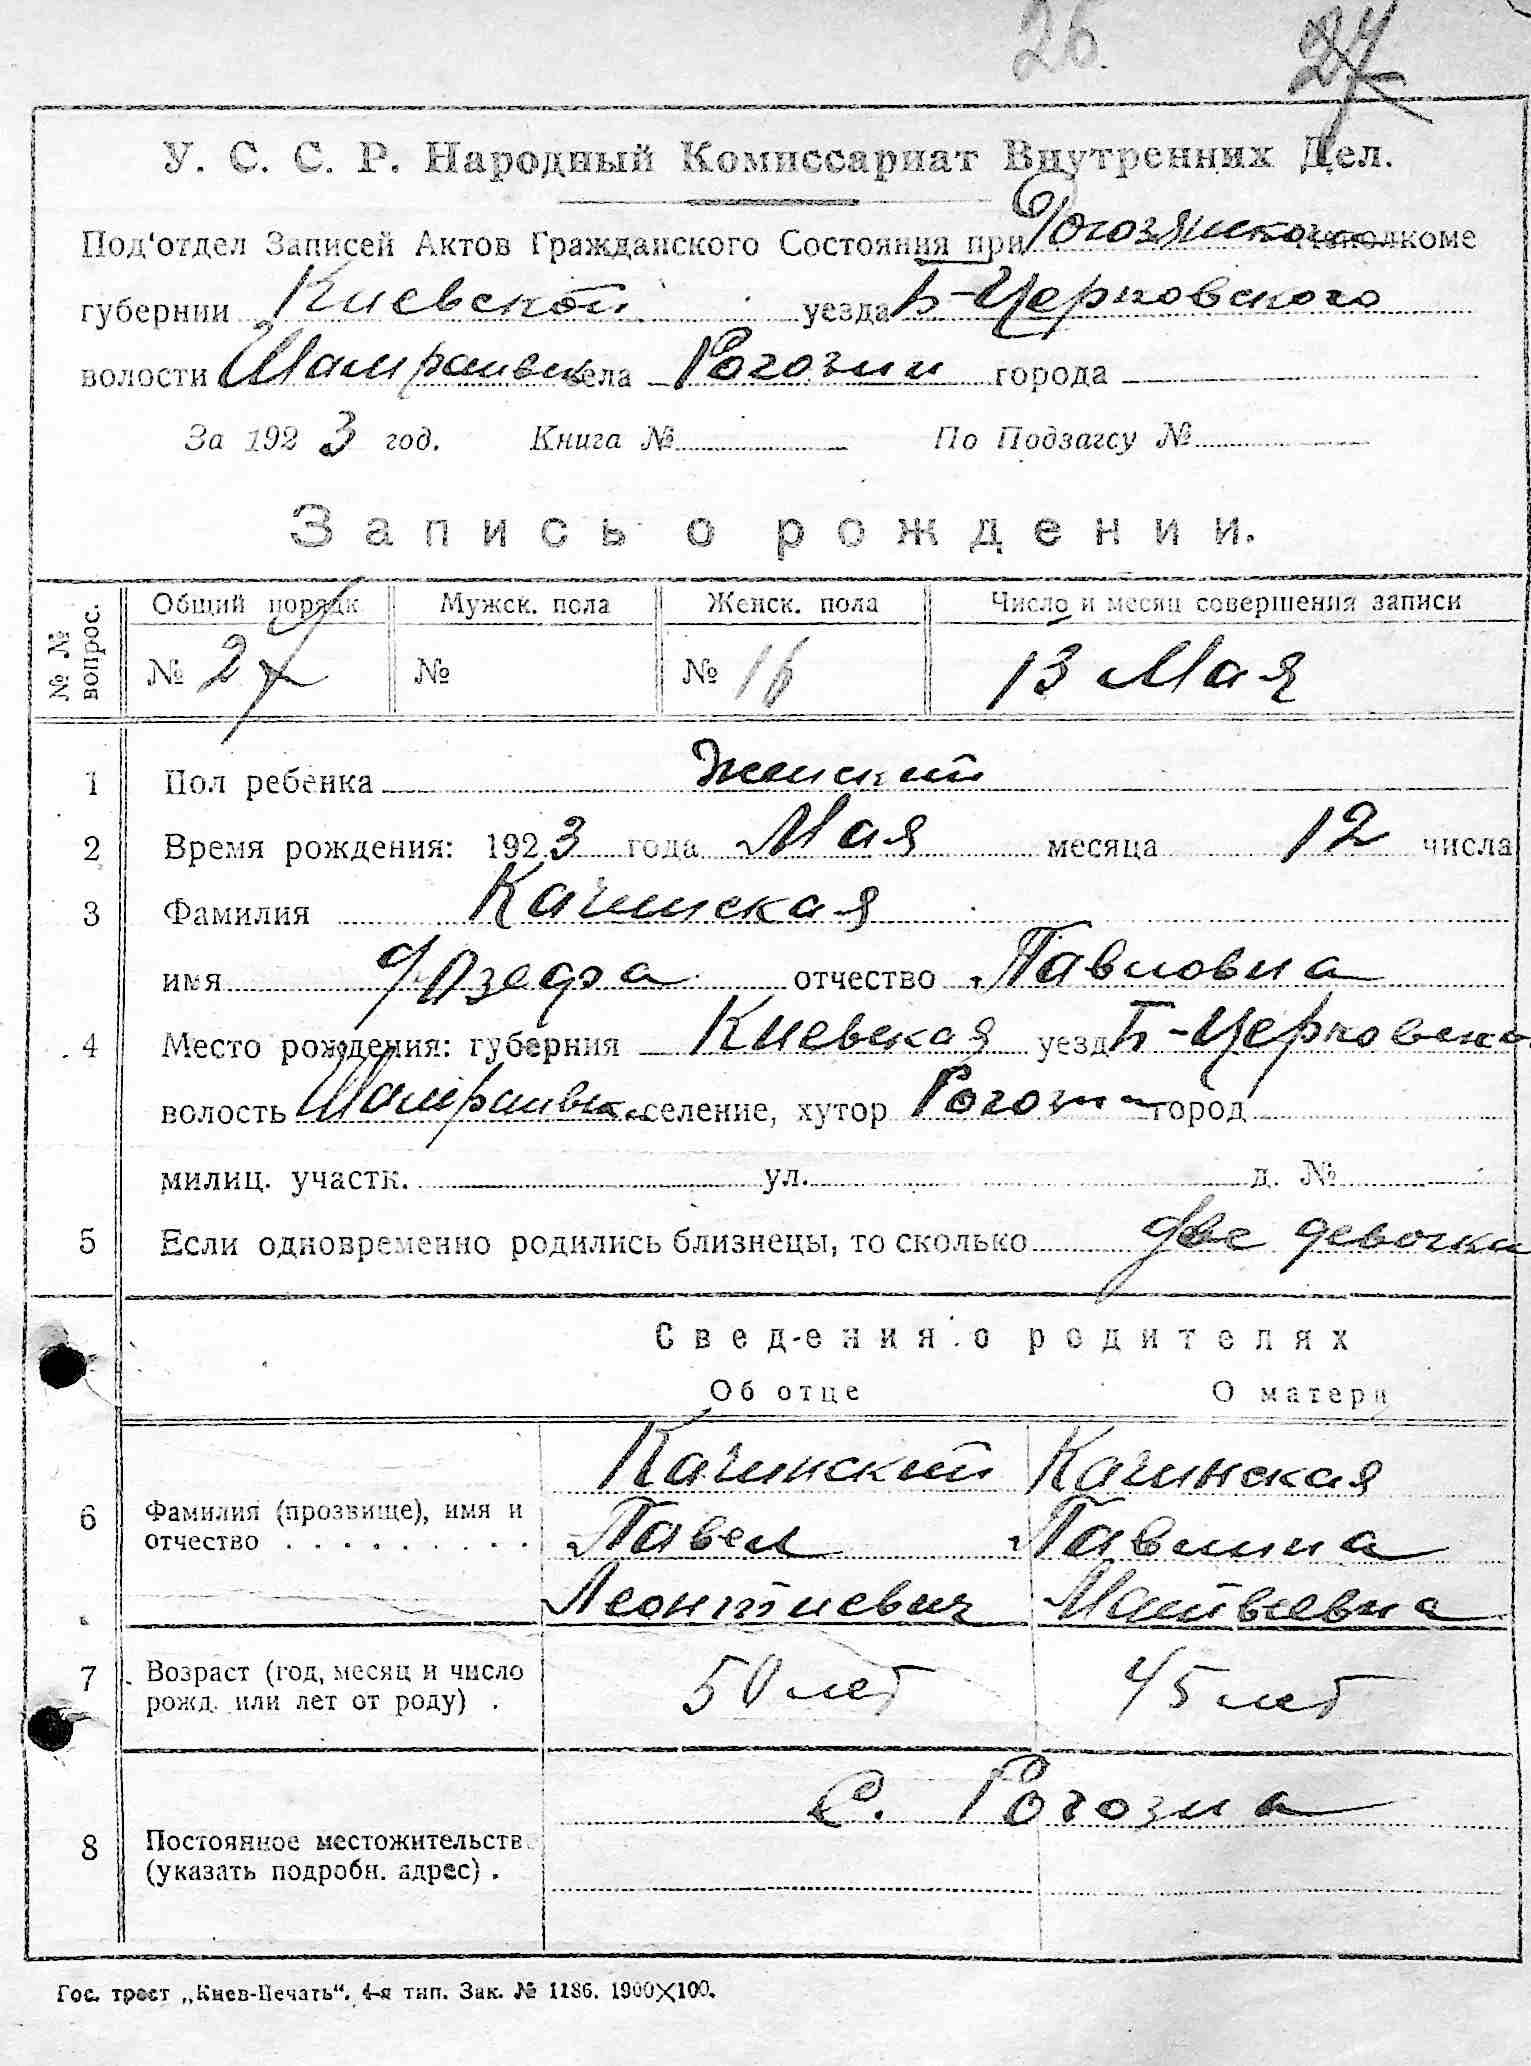 26. 27
У. С. С. Р. Народный Комиссариат Внутренних Дел.
Под'отдел Записей Актов Гражданского Состояния при Рогозянском Исполкоме
губернии Киевской уезда Б-Церковского
волости Шамраивск села Рогозни города
За 1923 год. Книга № По Подзагсу №
Запись о рождении.
№ № вопрос. Общий порядк Мужск. пола Женск. пола Число и месяц совершения записи
№ 27 № № 16 13 Мая
1 Пол ребенка Женский
2 Время рождения: 1923 года Мая месяца 12 числа
3 Фамилия Качинская
имя Юзефа отчество Павловна
4 Место рождения: губерния Киевская уезд Б-Церковско
волость Шамраивск селение, хутор Рогозна город
милиц. участк. ул. д. №
5 Если одновременно родились близнецы, то сколько две девочки
Сведения о родителях
Об отце О матери
Качинский Качинская
6 Фамилия (прозвище), имя и отчество Павел Павлина
Леонтиевич Матвеевна
7 Возраст (год, месяц и число рожд. или лет от роду) . 50 лет 45 лет
С. Рогозна
8 Постоянное местожительств
(указать подробн. адрес) .
Гос. трест „Киев-Печать“. 4-я тип. Зак. № 1186. 1900×100.